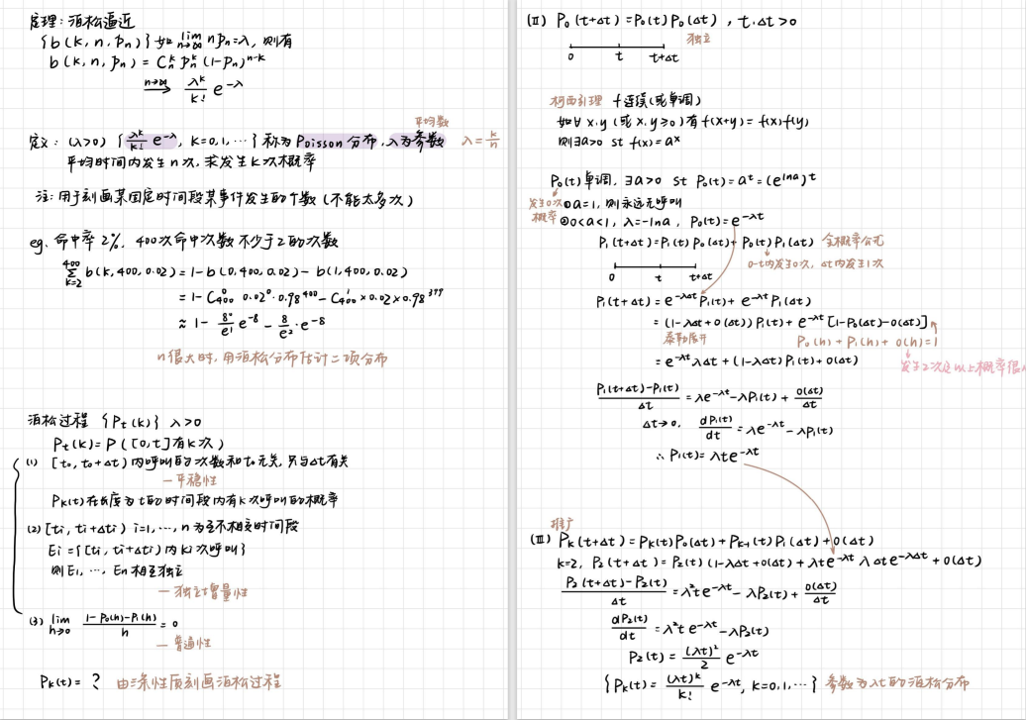 定理：泊松逼近
{b(k, n, pₙ)} 如 lim n→∞ npₙ=λ, 则有
b(k, n, pₙ) = Cₙᵏ pₙᵏ (1-pₙ)ⁿ⁻ᵏ
n→∞ ⟹ λᵏ/k! e^-λ
平均数
定义：(λ>0) {λᵏ/k! e^-λ, k=0,1,⋯} 称为 Poisson 分布, λ为参数 λ=k/n
平均时间内发生n次, 求发生k次概率
注：用于刻画某固定时间段某事件发生的个数 (不能太多次)
eg. 命中率 2%, 400次命中次数不少于2的次数
∑_{k=2}^{400} b(k,400,0.02) = 1-b(0,400,0.02)-b(1,400,0.02)
= 1- C₄₀₀⁰ 0.02⁰·0.98⁴⁰⁰ - C₄₀₀¹×0.02×0.98³⁹⁹
≈ 1- 8⁰/e¹ e⁻⁸ - 8/e²·e⁻⁸
n很大时, 用泊松分布估计二项分布
泊松过程 {Pt(k)} λ>0
Pt(k)=P([0,t]有k次)
(1) [t₀, t₀+Δt) 内呼叫的次数和t₀无关, 只与Δt有关
—平稳性
Pk(t)在长度为t的时间段内有k次呼叫的概率
(2) [ti, ti+Δti) i=1,⋯,n 为互不相交时间段
Ei={[ti, ti+Δti)内ki次呼叫}
则E₁,⋯, En相互独立
—独立增量性
(3) lim h→0 (1-P₀(h)-P₁(h))/h = 0
—普通性
Pk(t) = ? 由三条性质刻画泊松过程
(II) P₀(t+Δt)=P₀(t)P₀(Δt), t.Δt>0
独立
0 t t+Δt
柯西引理 f连续(或单调)
如∀x.y (或x.y≥0)有f(x+y)=f(x)f(y)
则∃a>0 st f(x)=aˣ
P₀(t)单调, ∃a>0 st P₀(t)=aᵗ=(e^lna)ᵗ
发生0次概率
①a=1, 则永远无呼叫
②0<a<1, λ=-lna, P₀(t)=e^-λt
P₁(t+Δt)=P₁(t)P₀(Δt)+P₀(t)P₁(Δt) 全概率公式
0-t内发生0次, Δt内发生1次
0 t t+Δt
P₁(t+Δt)=e^-λΔt P₁(t)+e^-λt P₁(Δt)
=(1-λΔt+o(Δt))P₁(t)+e^-λt[1-P₀(Δt)-o(Δt)]
泰勒展开 P₀(h)+P₁(h)+o(h)=1
=e^-λt λΔt+(1-λΔt)P₁(t)+o(Δt)
发生2次及以上概率很
(P₁(t+Δt)-P₁(t))/Δt = λe^-λt-λP₁(t)+o(Δt)/Δt
Δt→0, dP₁(t)/dt = λe^-λt-λP₁(t)
∴ P₁(t)=λte^-λt
推广
(III) Pk(t+Δt)=Pk(t)P₀(Δt)+Pk-₁(t)P₁(Δt)+o(Δt)
k=2, P₂(t+Δt)=P₂(t)(1-λΔt+o(Δt))+λte^-λt λΔte^-λΔt+o(Δt)
(P₂(t+Δt)-P₂(t))/Δt = λ²te^-λt-λP₂(t)+o(Δt)/Δt
dP₂(t)/dt = λ²te^-λt-λP₂(t)
P₂(t)=(λt)²/2 e^-λt
{Pk(t)=(λt)ᵏ/k! e^-λt, k=0,1,⋯} 参数为λt的泊松分布